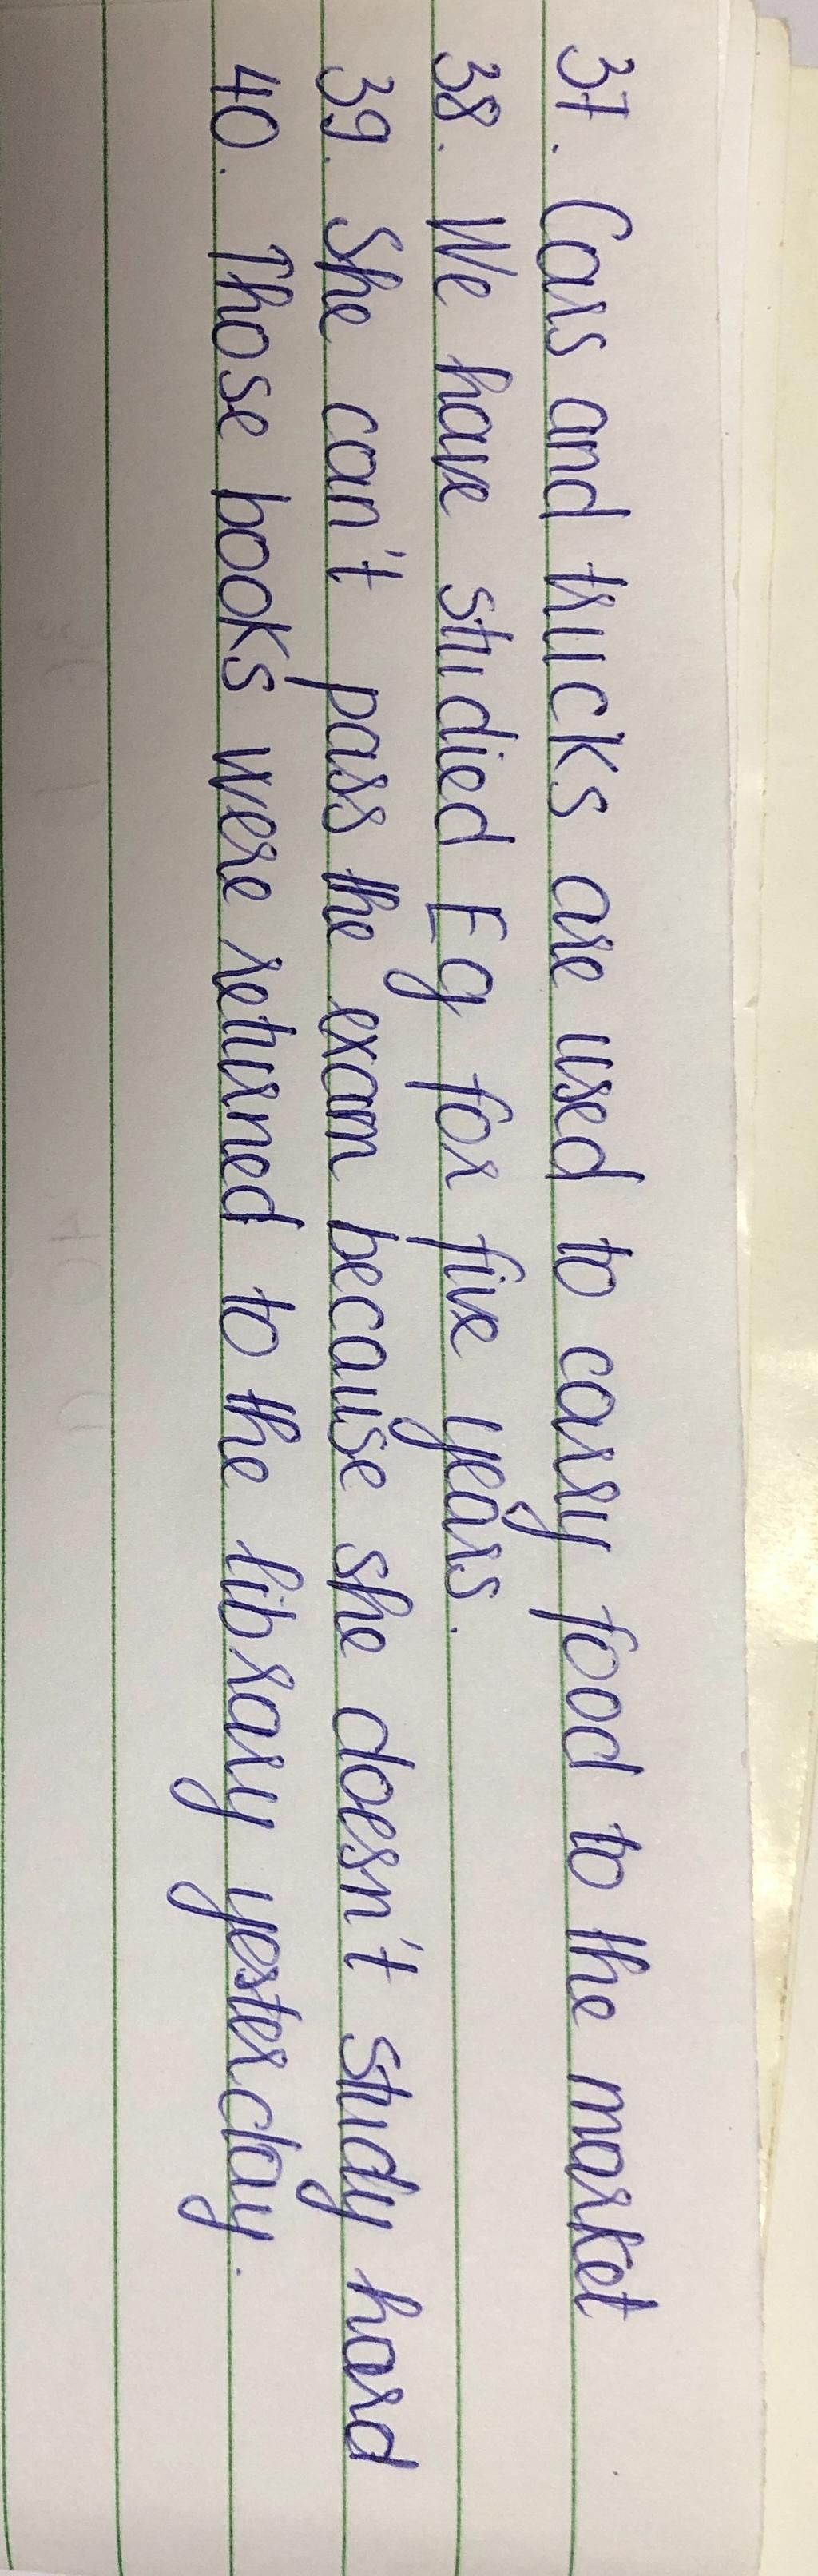 37. Cars and trucks are used to carry food to the market
38. We have studied Eg for five years.
39. She can't pass the exam because she doesn't study hard
40. Those books were returned to the library yesterday.